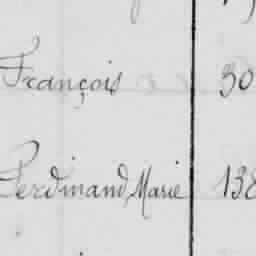 François 30
Ferdinand Marie 138